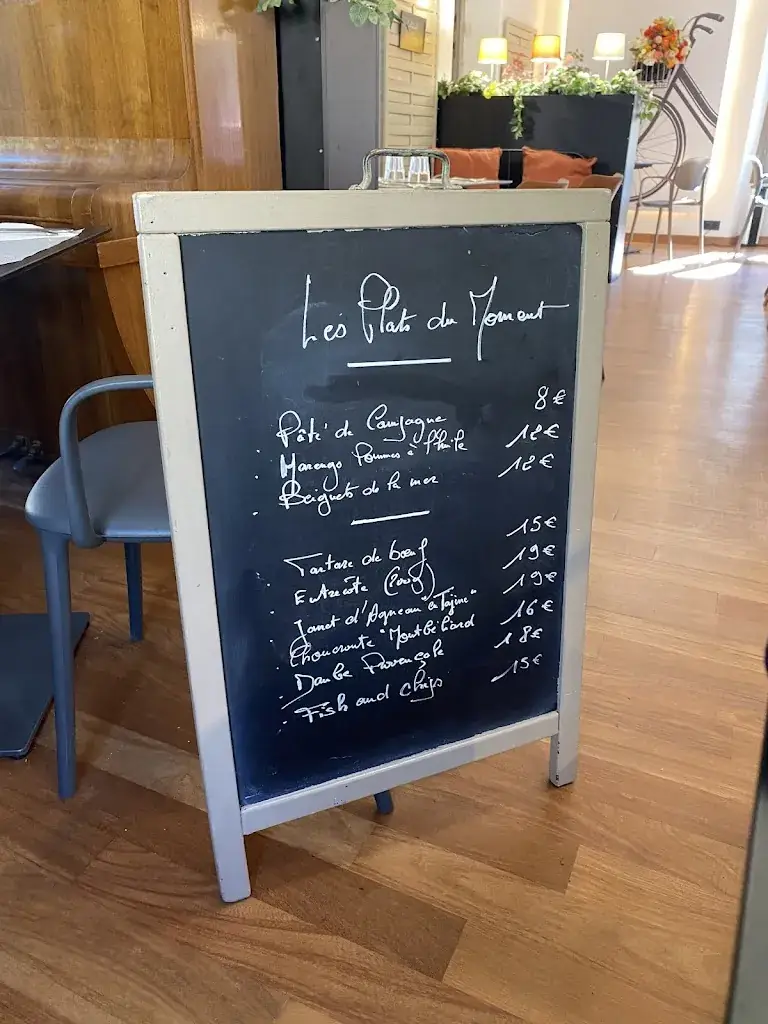 Les Plats du Moment
Pâté de Campagne 8€
Harengs Pommes à l'huile 12€
Beignets de la mer 12€
Tartare de boeuf 15€
Entrecôte 19€
Jarret d'Agneau "en Tajine" 19€
Choucroute "Montbéliard 16€
Daube Provençale 18€
Fish and chips 15€